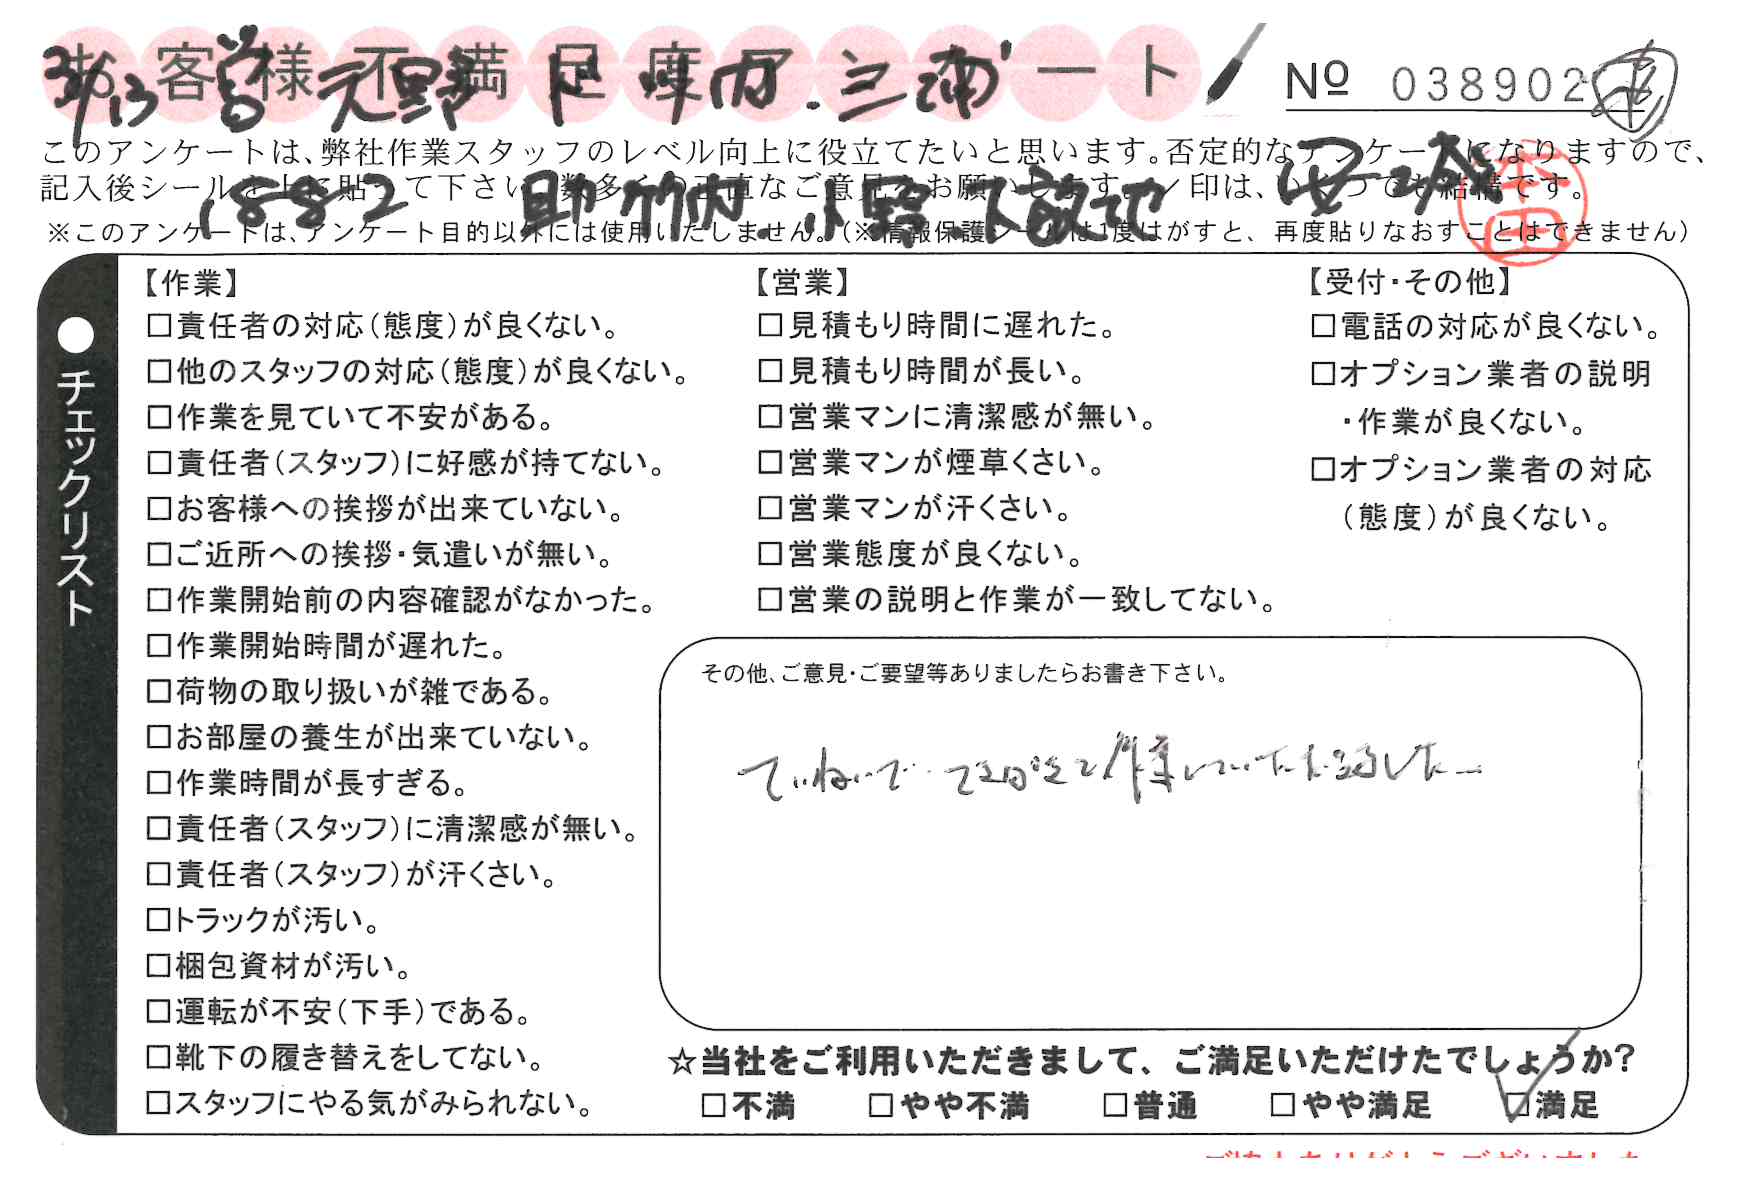 お客様不満足度アンケート
№ 038902
3/13 曽 天野 下 竹内.三浦
このアンケートは、弊社作業スタッフのレベル向上に役立てたいと思います。否定的なアンケートになりますので、
記入後シールを上に貼って下さい。数多くの正直なご意見をお願いします。✓印は、いくつでも結構です。
1882 助 竹内.小野
※このアンケートは、アンケート目的以外には使用いたしません。(※情報保護シールは1度はがすと、再度貼りなおすことはできません)
本田
●チェックリスト
【作業】
□責任者の対応(態度)が良くない。
□他のスタッフの対応(態度)が良くない。
□作業を見ていて不安がある。
□責任者(スタッフ)に好感が持てない。
□お客様への挨拶が出来ていない。
□ご近所への挨拶・気遣いが無い。
□作業開始前の内容確認がなかった。
□作業開始時間が遅れた。
□荷物の取り扱いが雑である。
□お部屋の養生が出来ていない。
□作業時間が長すぎる。
□責任者(スタッフ)に清潔感が無い。
□責任者(スタッフ)が汗くさい。
□トラックが汚い。
□梱包資材が汚い。
□運転が不安(下手)である。
□靴下の履き替えをしてない。
□スタッフにやる気がみられない。
【営業】
□見積もり時間に遅れた。
□見積もり時間が長い。
□営業マンに清潔感が無い。
□営業マンが煙草くさい。
□営業マンが汗くさい。
□営業態度が良くない。
□営業の説明と作業が一致してない。
【受付・その他】
□電話の対応が良くない。
□オプション業者の説明
・作業が良くない。
□オプション業者の対応
(態度)が良くない。
その他、ご意見・ご要望等ありましたらお書き下さい。
ていねいで てきぱきと作業していただきました
☆当社をご利用いただきまして、ご満足いただけたでしょうか?
□不満 □やや不満 □普通 □やや満足 ☑満足